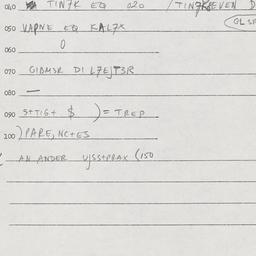 040 TIN7K EQ 020 / TIN7K EVEN D
050 VAPNE EQ KAL7X
0
060
070 GIBM3R DI L7EJT3R
080 —
090 S+TIG+ $ ) = TREP
100 ) PARE, NC+ES
AN ANDER VJSS+PRAX (150